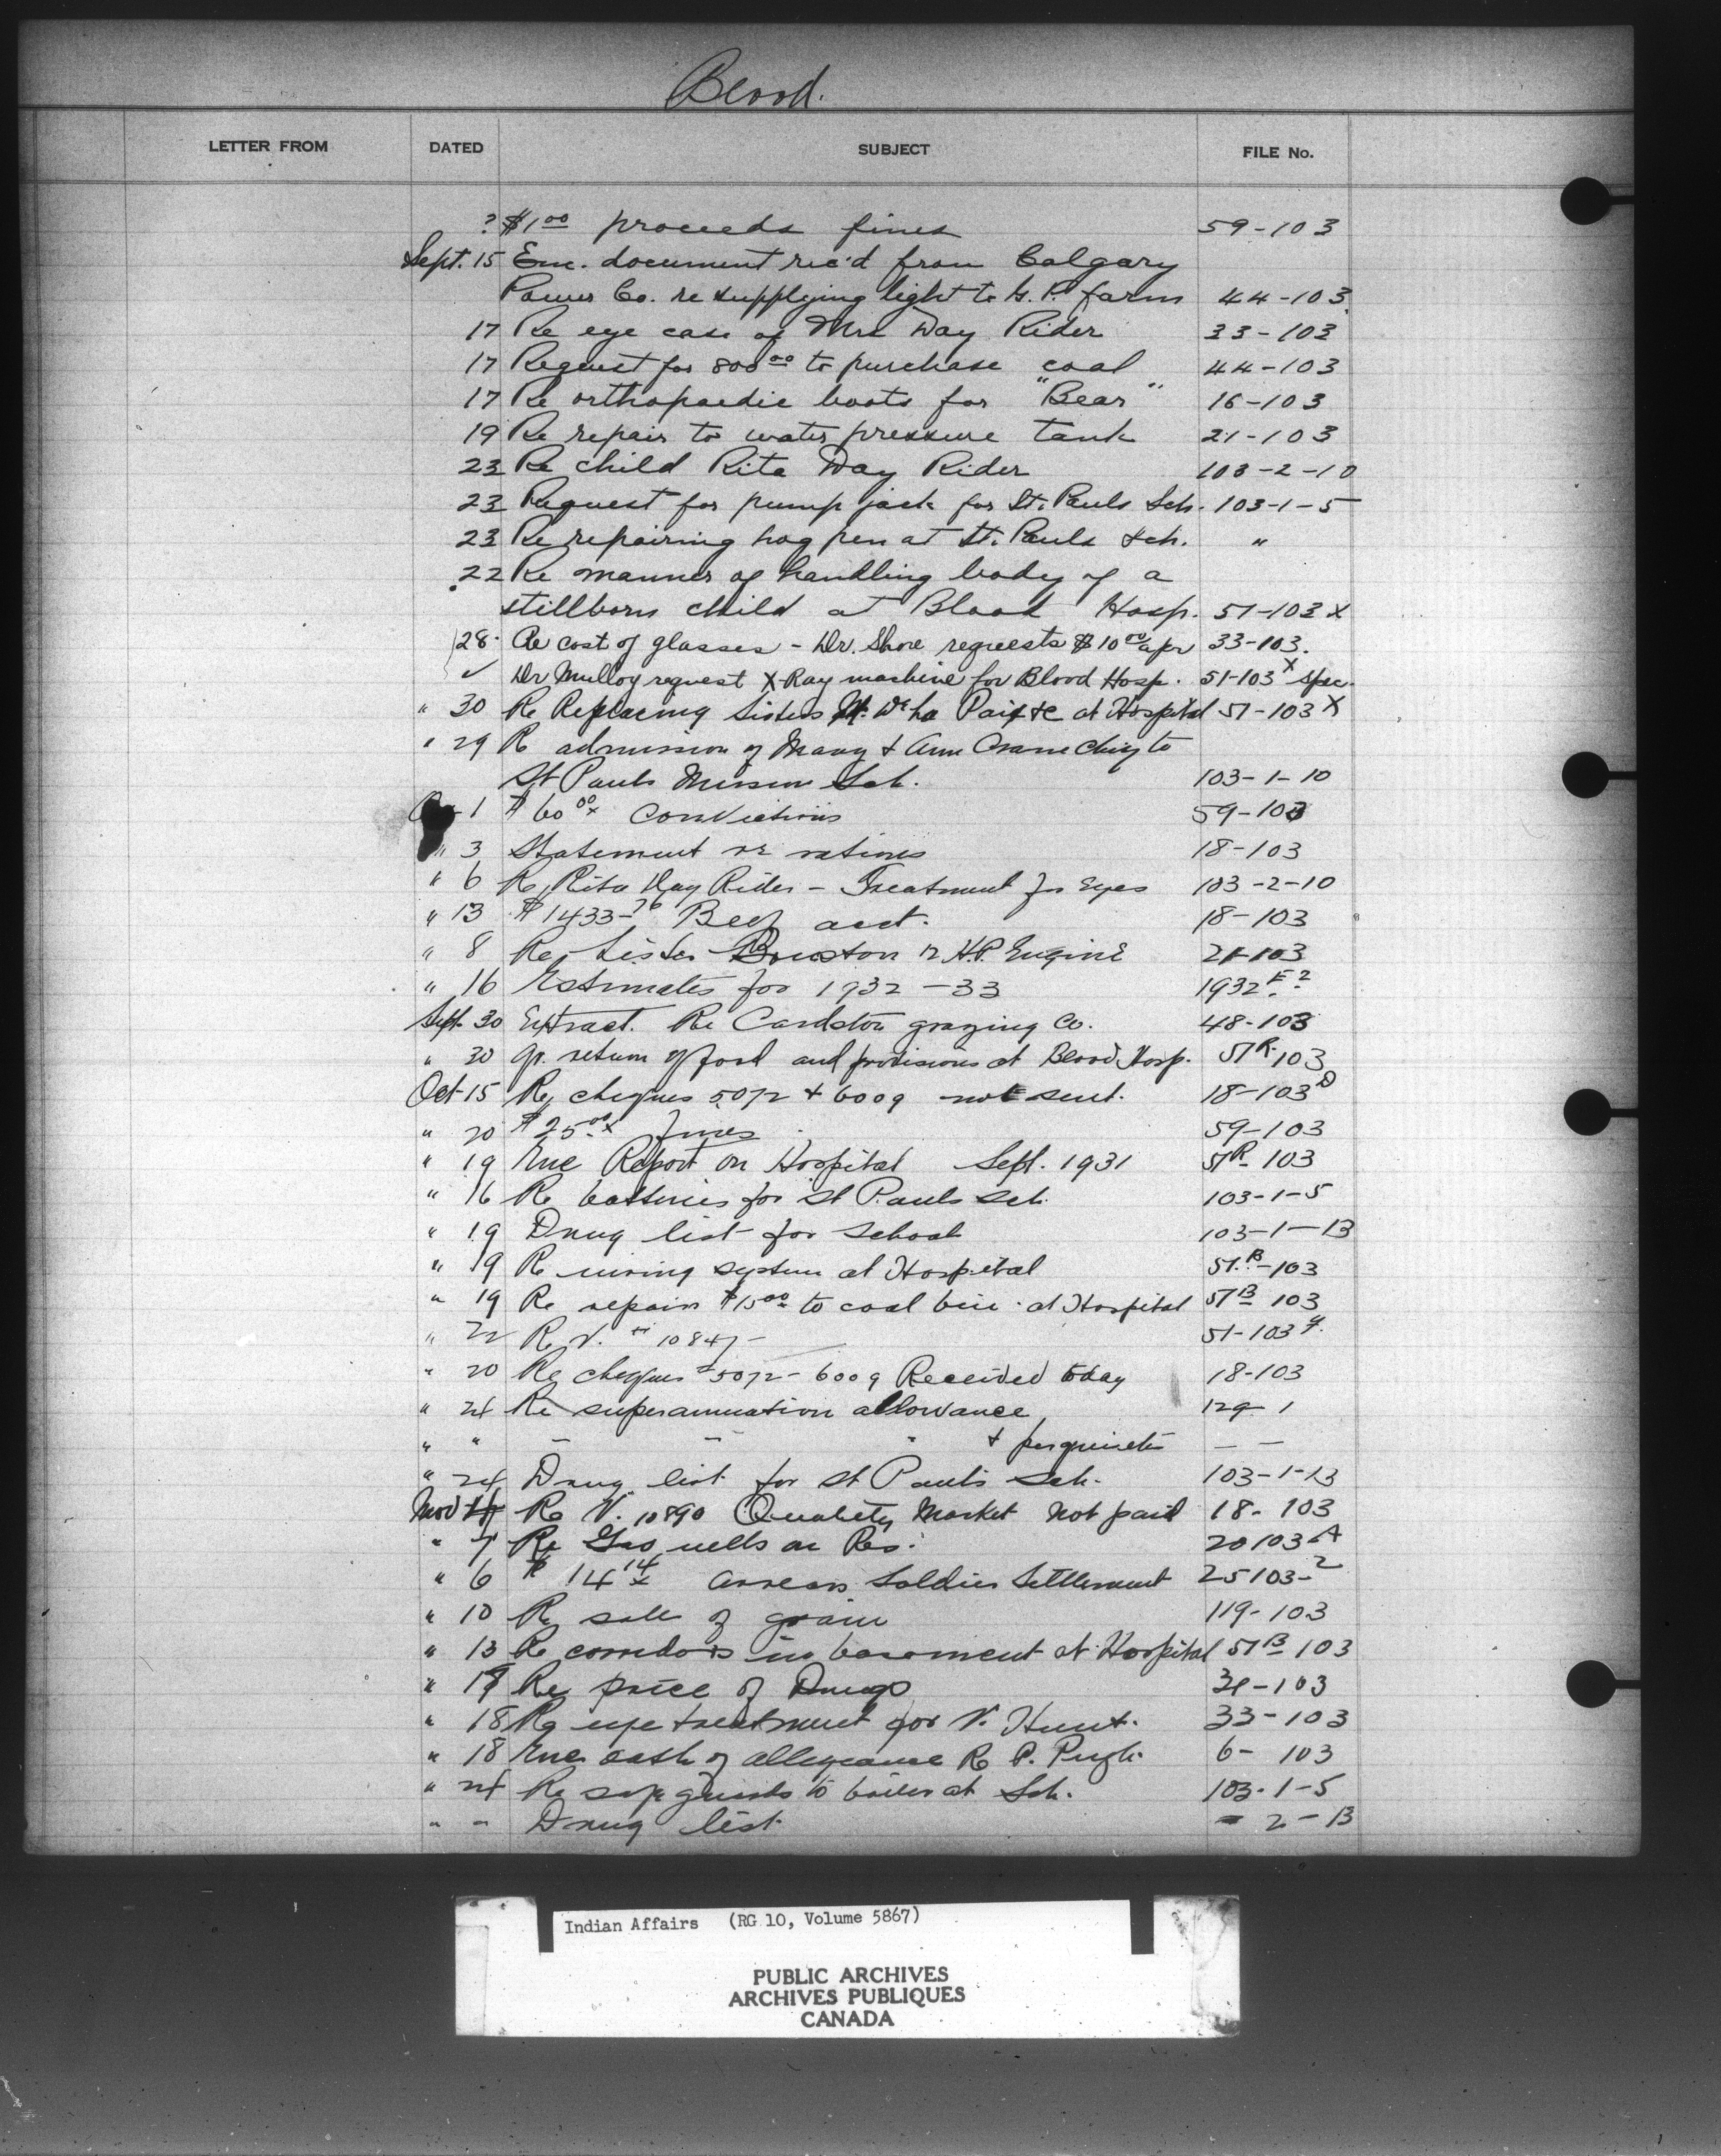 Blood.
LETTER FROM DATED SUBJECT FILE No.
? $1.00 proceeds fines 59-103
Sept. 15 Enc. document rec'd from Calgary
Power Co. re supplying light to farm 44-103
17 Re eye case of Mrs Day Rider 33-103
17 Request for 800.00 to purchase coal 44-103
17 Re orthopaedic boots for "Bear" 16-103
19 Re repair to water pressure tank 21-103
23 Re child Rita Day Rider 103-2-10
23 Request for pump jack for St. Pauls Sch. 103-1-5
23 Re repairing hog pen at St. Pauls Sch. "
22 Re manner of handling body of a
stillborn child at Blood Hosp. 51-103 X
28 Re cost of glasses - Dr. Shore requests $10.00 a pr 33-103.
✓ Dr Mulloy request X-Ray machine for Blood Hosp. 51-103 X Spec.
" 30 Re Replacing Sisters at Hospital 51-103 X
" 29 Re admission of Mary & Ann Crane Chief to
St Pauls Mission Sch. 103-1-10
1 $60.00 Convictions 59-103
" 3 Statement re rations 18-103
" 6 Re Rita Day Rider - Treatment for Eyes 103-2-10
" 13 $1433- Beef acct. 18-103
" 8 Re Lister Bruston 12 H.P. Engine 21-103
" 16 Estimates for 1932-33 1932 E.2
Sept. 30 Extract. Re Cardston grazing Co. 48-103
" 30 Qr. return of food and provisions at Blood Hosp. 51R-103
Oct-15 Re cheques 5072 & 6009 not sent. 18-103 D
" 20 $25.00 fines 59-103
" 19 Enc Report on Hospital Sept. 1931 51R-103
" 16 Re batteries for St Pauls Sch. 103-1-5
" 19 Drug list for School 103-1-13
" 19 Re wiring system at Hospital 51.B-103
" 19 Re repairs $15.00 to coal bin at Hospital 51B-103
" 22 Re V. # 10847- 51-103
" 20 Re cheques #5072-6009 Received today 18-103
" 24 Re superannuation allowance 129-1
" " - - " & perquisites — —
" 24 Drug list for St Pauls Sch. 103-1-13
Nov Re V. 10890 Quality Market Not paid 18-103
" 7 Re Gas wells on Res. 20103-A
" 6 $14.14 arrears Soldier Settlement 25103-2
" 10 Re sale of grain 119-103
" 13 Re corridors in basement at Hospital 51B-103
" 19 Re price of Drugs 31-103
" 18 Re eye treatment for V. Hunt. 33-103
" 18 Enc oath of allegiance Re P. Pugh. 6-103
" 24 Re to boiler at Sch. 103-1-5
" " Drug list - 2-13
Indian Affairs (RG 10, Volume 5867)
PUBLIC ARCHIVES
ARCHIVES PUBLIQUES
CANADA